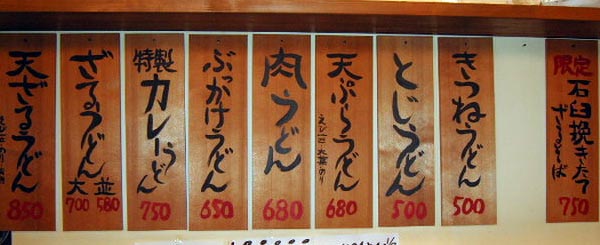 限定
石臼挽きたて
ざるそば
750
きつねうどん
500
とじうどん
500
天ぷらうどん
680
肉うどん
680
ぶっかけうどん
650
特製
カレーうどん
750
ざるうどん
並 580
大 700
天ざるうどん
850